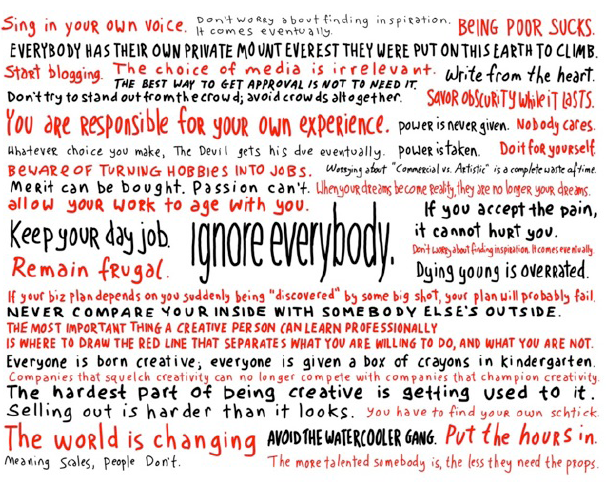 Sing in your own voice. Don't worry about finding inspiration. BEING POOR SUCKS.
It comes eventually.
EVERYBODY HAS THEIR OWN PRIVATE MOUNT EVEREST THEY WERE PUT ON THIS EARTH TO CLIMB.
Start blogging. The choice of media is irrelevant. Write from the heart.
THE BEST WAY TO GET APPROVAL IS NOT TO NEED IT.
Don't try to stand out from the crowd; avoid crowds altogether. SAVOR OBSCURITY WHILE IT LASTS.
You are responsible for your own experience. power is never given. Nobody cares.
Whatever choice you make, The Devil gets his due eventually. power is taken. Do it for yourself.
BEWARE OF TURNING HOBBIES INTO JOBS. Worrying about "Commercial vs. Artistic" is a complete waste of time.
Merit can be bought. Passion can't. When your dreams become Reality, they are no longer your dreams.
allow your work to age with you. If you accept the pain,
it cannot hurt you.
Keep your day job. Ignore everybody. Don't worry about finding inspiration. It comes eventually.
Remain frugal. Dying young is overrated.
If your biz plan depends on you suddenly being "discovered" by some big shot, your plan will probably fail.
NEVER COMPARE YOUR INSIDE WITH SOMEBODY ELSE'S OUTSIDE.
THE MOST IMPORTANT THING A CREATIVE PERSON CAN LEARN PROFESSIONALLY
IS WHERE TO DRAW THE RED LINE THAT SEPARATES WHAT YOU ARE WILLING TO DO, AND WHAT YOU ARE NOT.
Everyone is born creative; everyone is given a box of crayons in kindergarten.
Companies that squelch creativity can no longer compete with companies that champion creativity.
The hardest part of being creative is getting used to it.
Selling out is harder than it looks. You have to find your own schtick.
The world is changing AVOID THE WATERCOOLER GANG. Put the hours in.
Meaning Scales, people Don't. The more talented somebody is, the less they need the props.